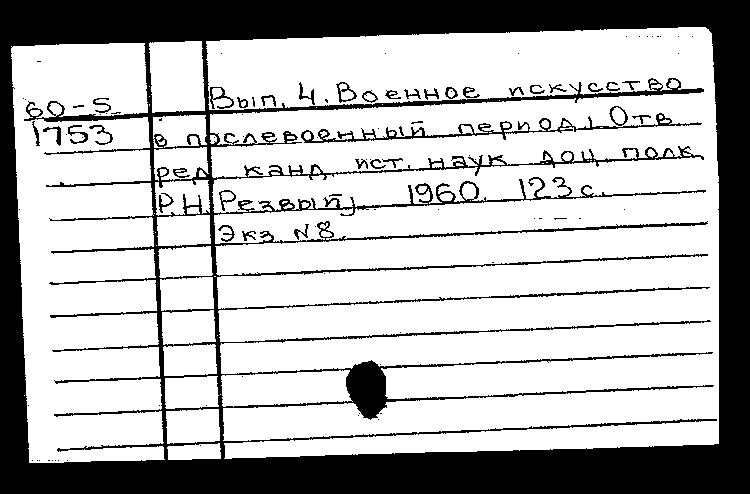 60-5 Вып. 4. Военное искусство
1753 в послевоенный период / Отв
ред. канд. ист. наук доц. полк.
Р.Н. Резвый/. 1960. 123 с.
Экз. N8.